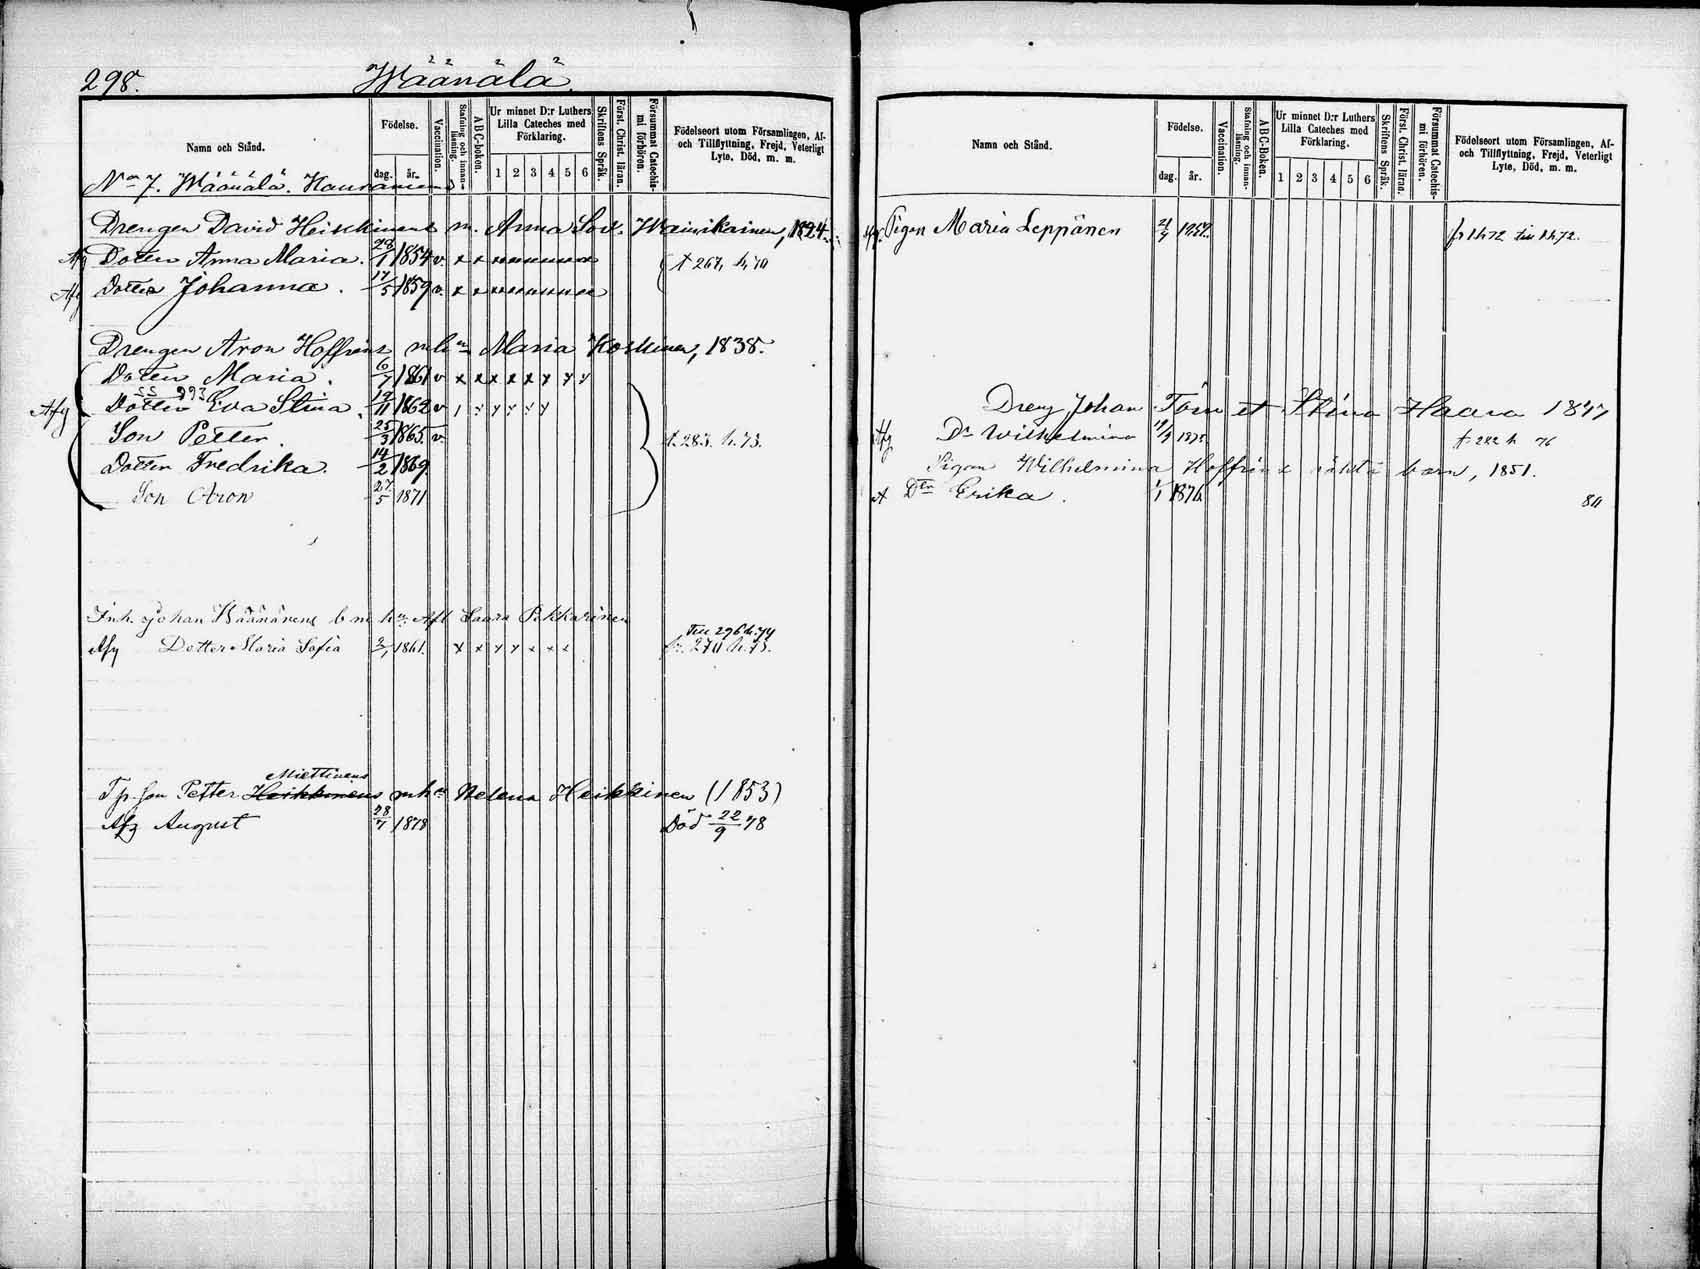 298. Wäänälä.
Namn och Stånd. Födelse. dag. år. Vaccination. Stafning och innanläsning. ABC-boken. Ur minnet D:r Luthers Lilla Cateches med Förklaring. 1 2 3 4 5 6 Skriftens Språk. Först. Christ. läran. Försummat Catechismi förhören. Födelseort utom Församlingen, Af- och Tillflyttning, Frejd, Veterligt Lyte, Död, m. m.
No 7. Wäänälä.
Drengen David Heiskinens m. Anna Sof. Wainikainen, 1824.
Afg Dotter Anna Maria. 28/1 1854 v. x x x x x x x x x t 267, h, 70
Afg Dotter Johanna. 17/5 1859 v. x x x x x x x x x
Drengen Aron Hoffréns m hu Maria Koskinen, 1838.
Dotter Maria. 6/7 1861 v x x x x x x x x
Afg Dotter Eva Stina. 12/11 1862 v x x x x x
Son Petter. 25/3 1865. v. t. 283. h. 73.
Dotter Fredrika. 14/2 1869
Son Aron 27/5 1871
Inh. Johan Väänänens m hu Laura Pekkarinen
Afg Dotter Maria Sofia 2/1 1861. x x x x x x x Till 296 h. 74
fr. 270 h. 73.
Miettinens
T.p. son Petter Heikkinens m hu Helena Heikkinen (1853)
Afg August 28/7 1878 Död 22/9 78
Namn och Stånd. Födelse. dag. år. Vaccination. Stafning och innanläsning. ABC-Boken. Ur minnet D:r Luthers Lilla Cateches med Förklaring. 1 2 3 4 5 6 Skriftens Språk. Först. Christ. läran. Försummat Catechismi förhören. Födelseort utom Församlingen, Af- och Tillflyttning, Frejd, Veterligt Lyte, Död, m. m.
Afg. Pigan Maria Leppänen
Dreng Johan et Stina Haara 1847
Afg Dr Wilhelmina t 282 h 76
Pigan Wilhelmina Hoffréns oäkta barn, 1851.
A Dtr Erika. 1/1 1876.